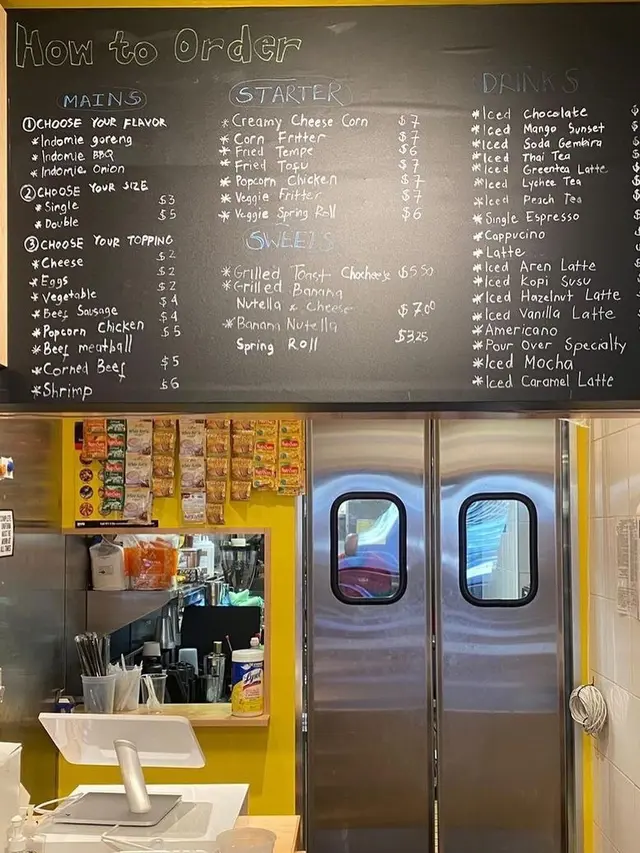 How to Order
MAINS
① CHOOSE YOUR FLAVOR
* Indomie goreng
* Indomie BBQ
* Indomie Onion
② CHOOSE YOUR SIZE
* Single $3
* Double $5
③ CHOOSE YOUR TOPPING
* Cheese $2
* Eggs $2
* Vegetable $2
* Beef Sausage $4
* Popcorn Chicken $4
* Beef meatball $5
* Corned Beef $5
* Shrimp $6
STARTER
* Creamy Cheese Corn $7
* Corn Fritter $7
* Fried Tempe $6
* Fried Tofu $7
* Popcorn Chicken $7
* Veggie Fritter $7
* Veggie Spring Roll $6
SWEETS
* Grilled Toast Chocheese $5.50
* Grilled Banana
Nutella & Cheese $7.00
* Banana Nutella
Spring Roll $3.25
DRINKS
* Iced Chocolate
* Iced Mango Sunset
* Iced Soda Gembira
* Iced Thai Tea
* Iced Greentea Latte
* Iced Lychee Tea
* Iced Peach Tea
* Single Espresso
* Cappucino
* Latte
* Iced Aren Latte
* Iced Kopi Susu
* Iced Hazelnut Latte
* Iced Vanilla Latte
* Americano
* Pour Over Specialty
* Iced Mocha
* Iced Caramel Latte
Lysol